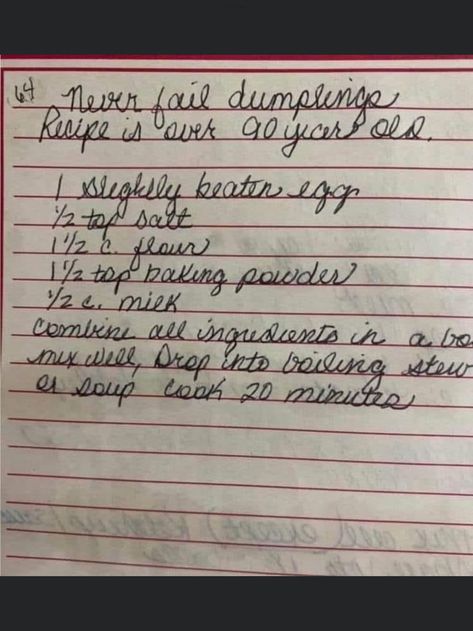 64
Never fail dumplings
Recipe is over 90 years old.
1 slightly beaten egg
1/2 tsp salt
1 1/2 c. flour
1 1/2 tsp baking powder
1/2 c. milk
combine all ingredients in a bo
mix well, Drop into boiling stew
or soup cook 20 minutes